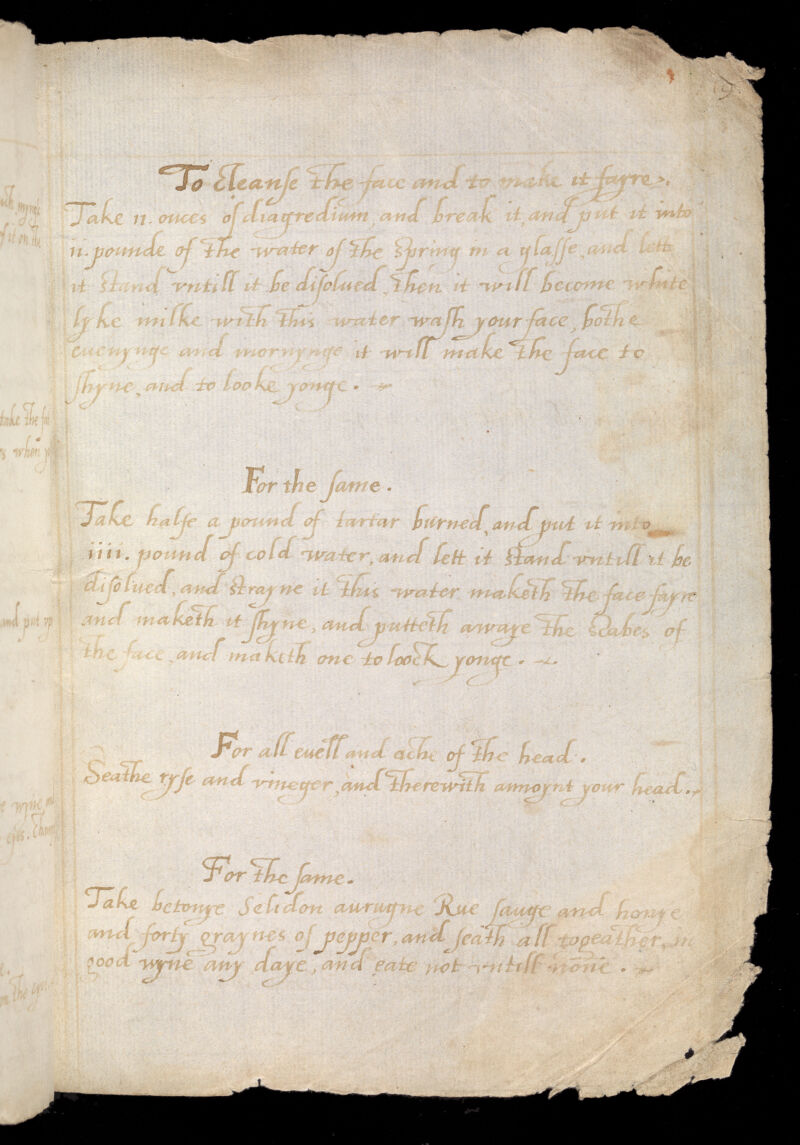 To cleanse the face and to make it fayre.
Take ii. ouces of diagredium, and break it, and put it into
ii. pounde of the water of the spring in a glasse, and lett
it stand vntill it be disolued, then it will become white
lyke milke with this water wash your face, bothe
euenynge and mornynge it will make the face to
shyne, and to looke yonge.
For the same.
Take halfe a pound of tartar burned, and put it into
iiii. pound of cold water, and lett it stand vntill it be
disolued, and strayne it this water maketh the face fayre
and maketh it shyne, and putteth awaye the scabes of
the face, and maketh one to loock yonge.
For all euell and ache of the head.
Seathe ryse and vineger, and therewith annoynt your head.
For the same.
Take betonye Selidon aurugne Rue sauge and honye
and forty graynes of pepper, and seath all togeather, in
good wyne any daye, and eate not vntill none.